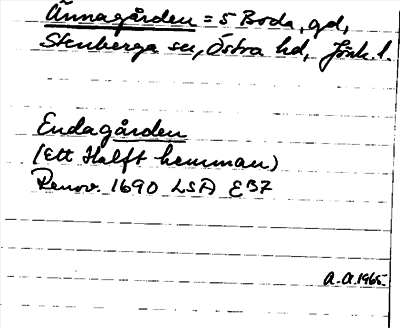 Ännagården = 5 Boda, gd,
Stenberga sn, Östra hd, Jönk. l.
Endagården
(Ett Halft hemman)
Renov. 1690 LSA EB7
A.A. 1965